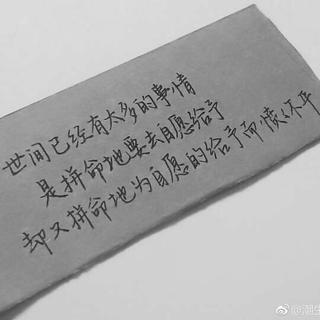 世间已经有太多的事情
是拼命地要去自愿给予
却又拼命地为自愿的给予而愤怀不平
@潮生